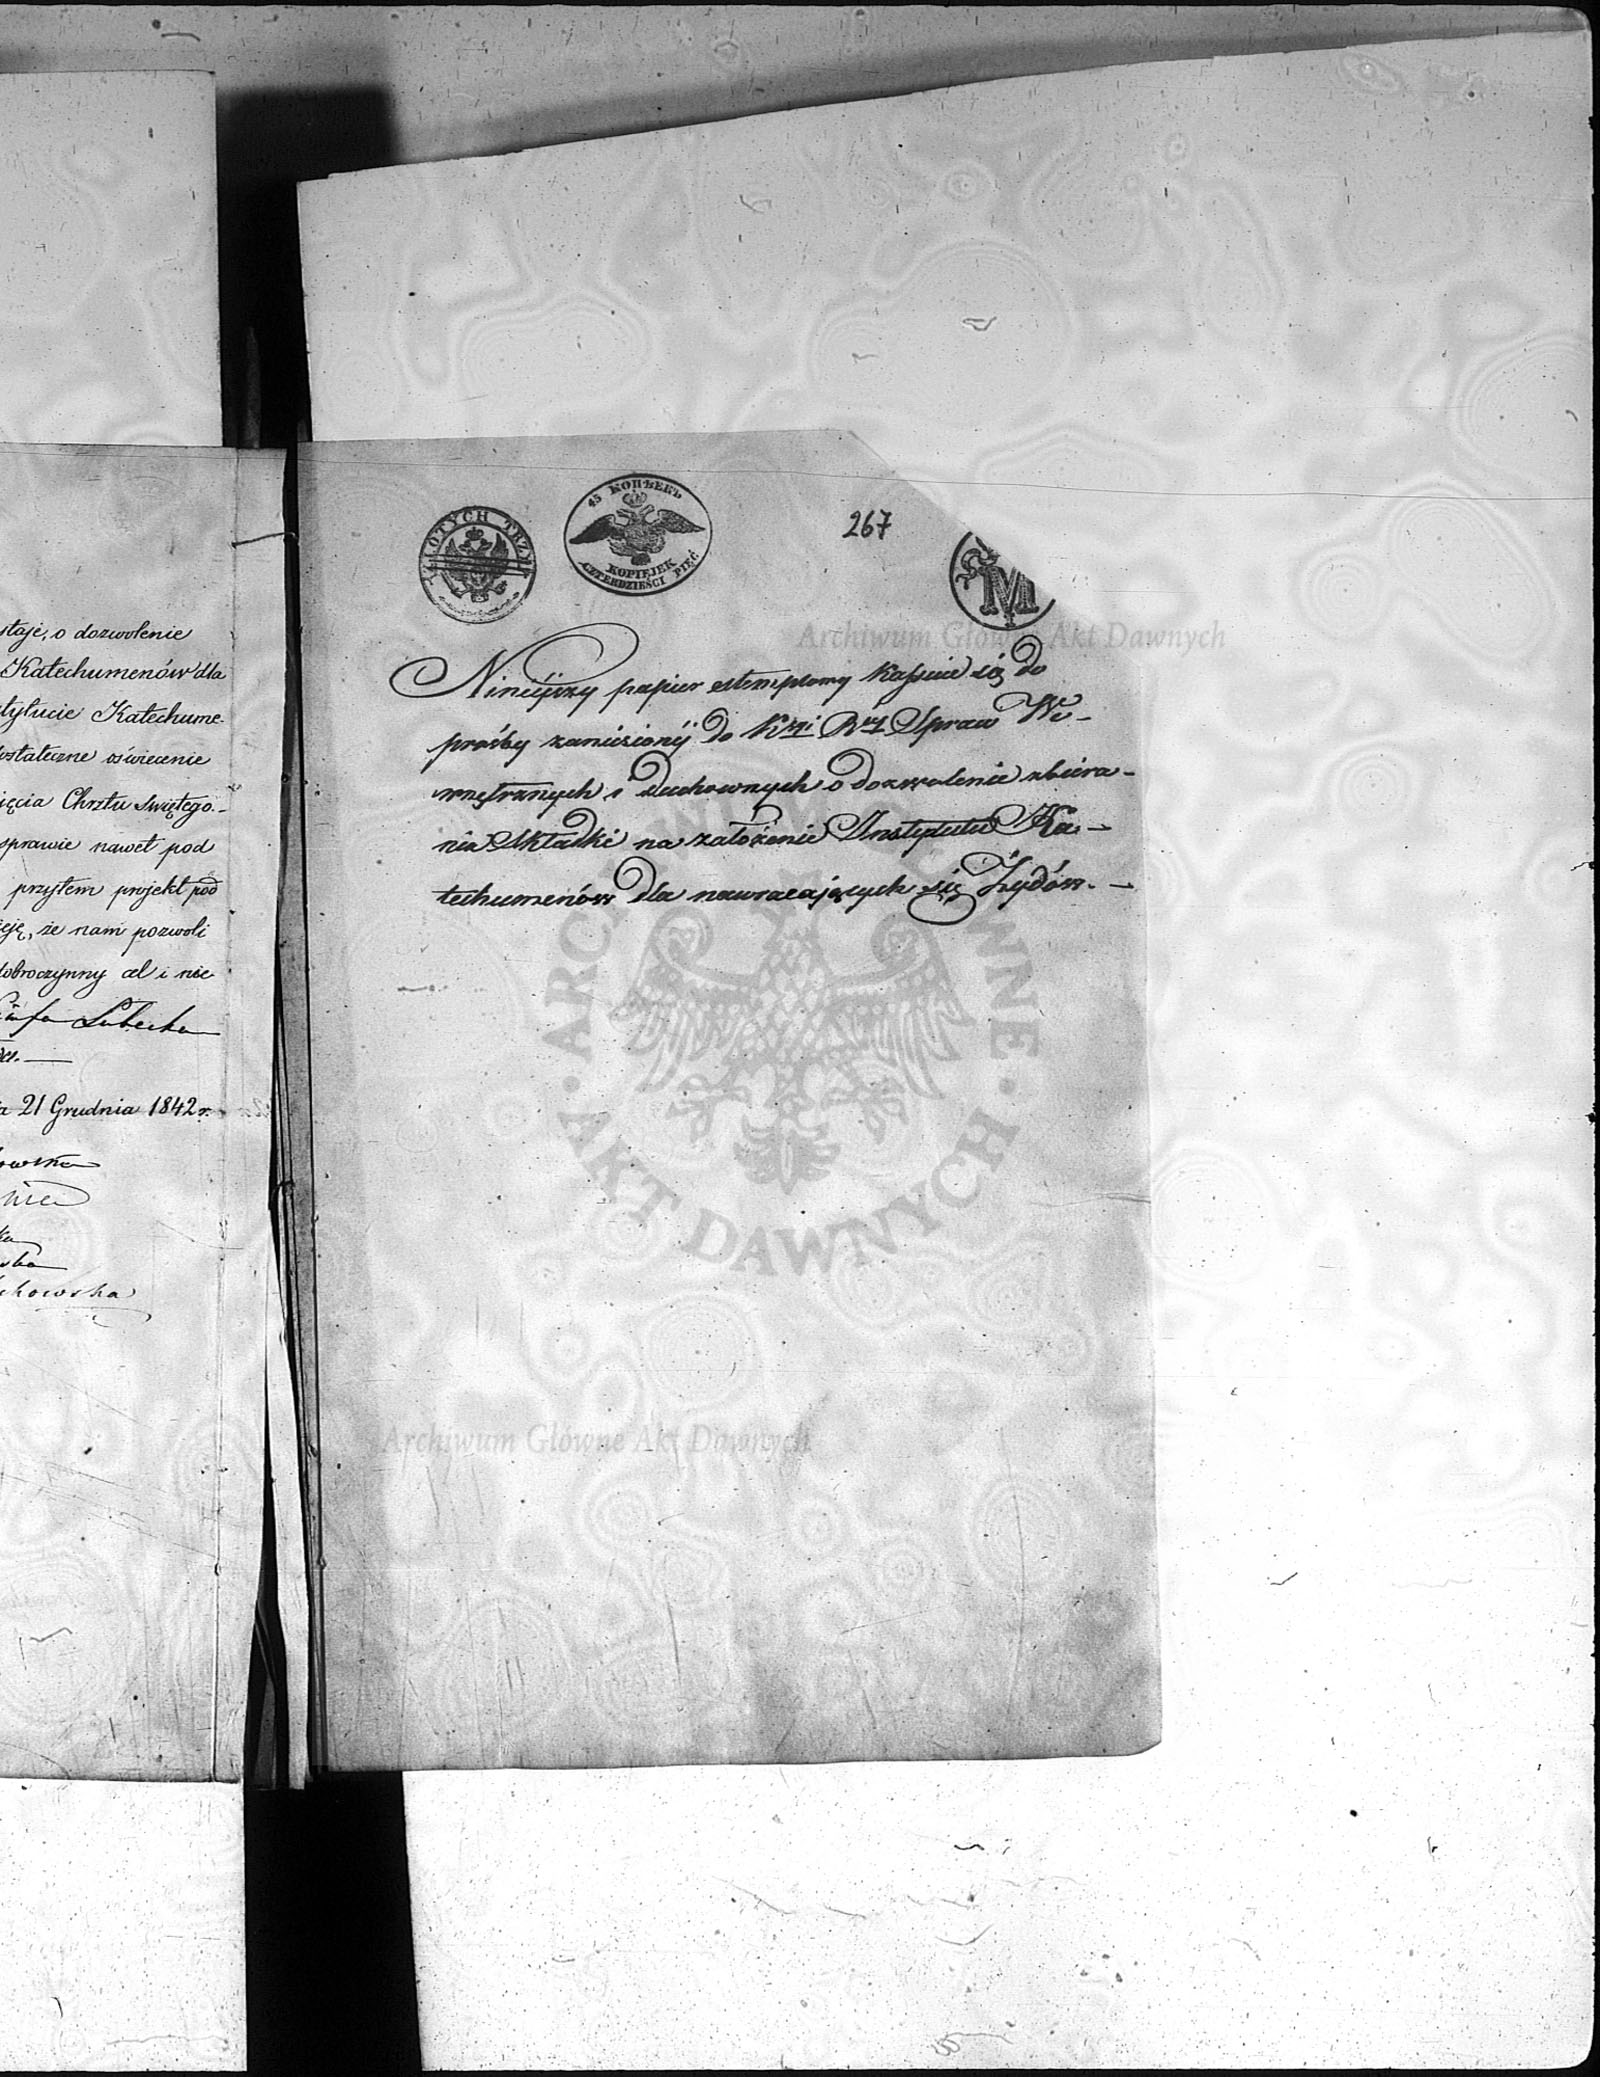 staje, o dozwolenie
Katechumenów dla
stytucie Katechume-
dostateczne oświecenie
ięcia Chrztu Świętego.-
sprawie nawet pod
przytem projekt pod
ieję, że nam pozwoli
dobroczynny cel i nie-
Lubecka
21 Grudnia 1842 r.
owska
nia
ka
ska
chowska
ZŁOTYCH TRZY
45 КОПѢЕКЪ
KOPIEJEK
CZTERDZIEŚCI PIĘĆ
267
M
Niniejszy papier stemplowy kassuie się do
prośby zaniesionéj do Kssyi Rwéj Spraw We-
wnętrznych i Duchownych o dozwolenie zbiera-
nia Składki na założenie Instytutu Ka-
techumenów dla nawracających się Żydów. -
Archiwum Główne Akt Dawnych
ARCHIWUM GŁÓWNE
AKT DAWNYCH
Archiwum Główne Akt Dawnych